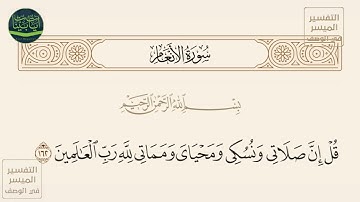 التفسير
الميسر
في الوصف
سُورَةُ الأَنْعَامِ
بِسْمِ اللَّهِ الرَّحْمَٰنِ الرَّحِيمِ
قُلْ إِنَّ صَلَاتِي وَنُسُكِي وَمَحْيَايَ وَمَمَاتِي لِلَّهِ رَبِّ الْعَالَمِينَ ١٦٢
التفسير
الميسر
في الوصف